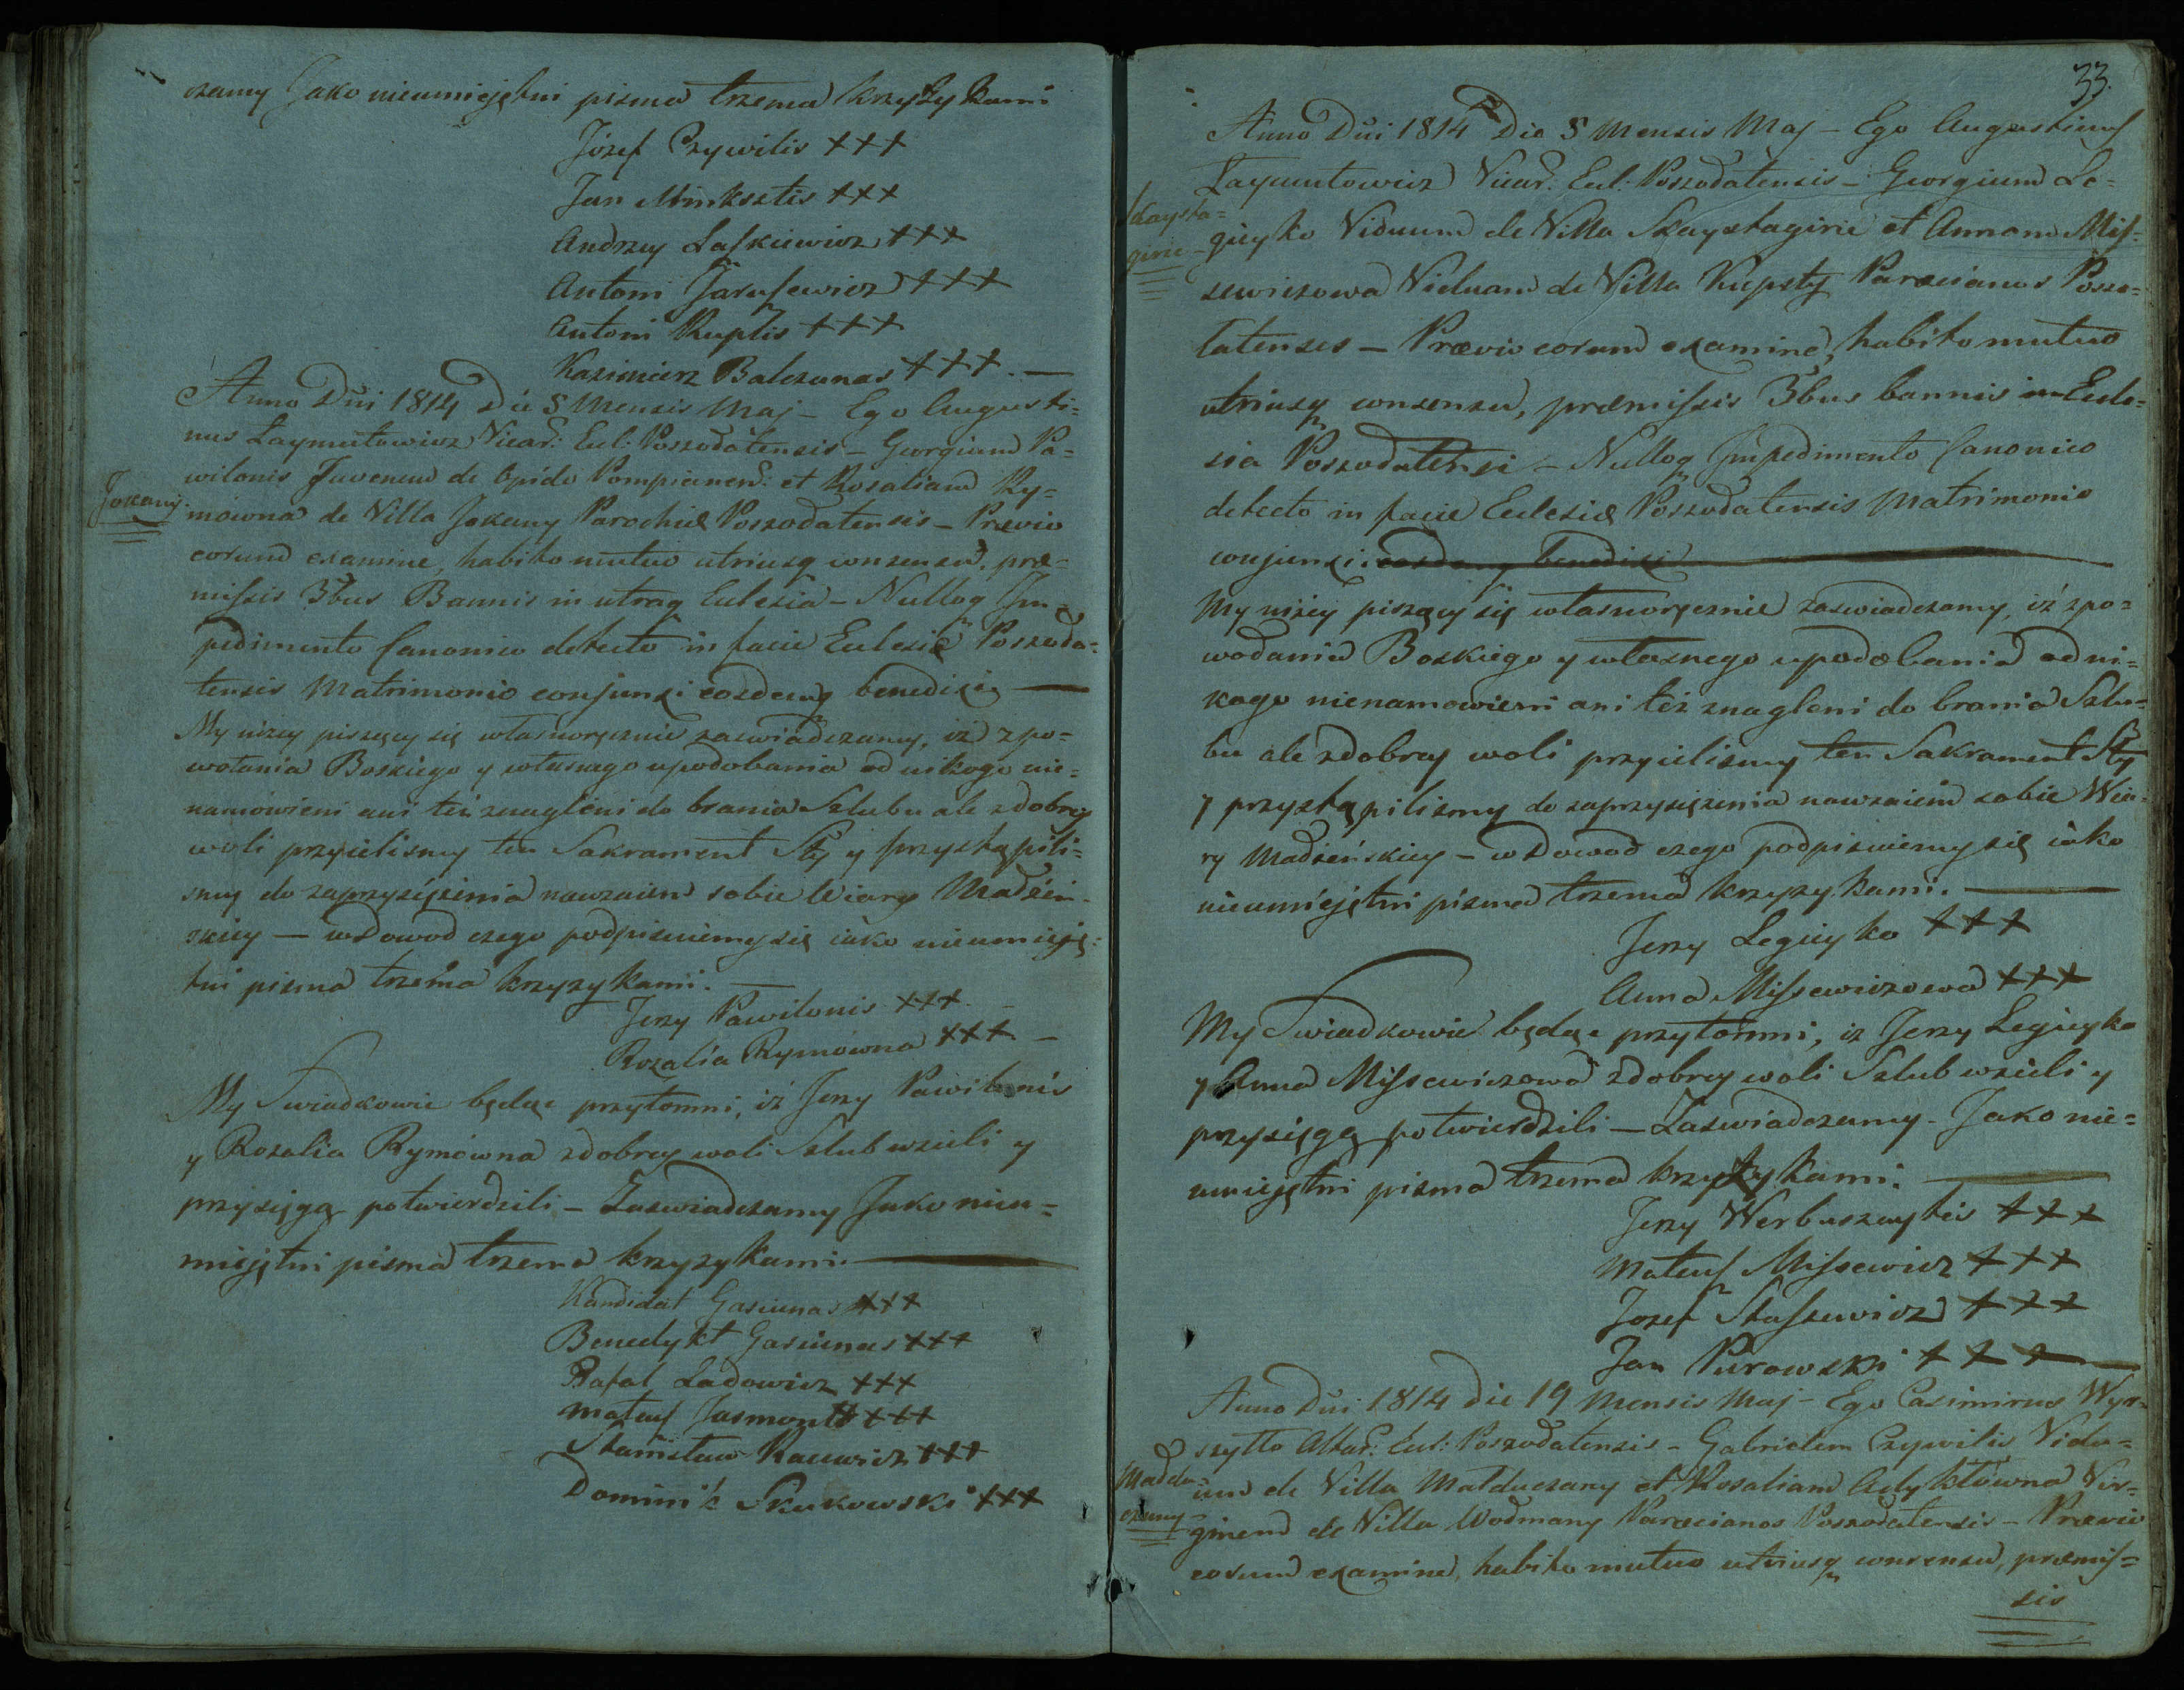 czamy Jako nieumiejętni pisma trzema krzyżykami
Józef Czywilis +++
Jan Minksztis +++
Andrzey Laskiewicz +++
Antoni Jarusewicz +++
Antoni Kuplis +++
Kazimierz Balczunas +++ . —
Anno Dni 1814 Die 5 Mensis Maj – Ego Augusti=
nus Laymutowicz Vicar: Eccl: Poszodatensis – Georgium Pa=
wilonis Juvenem de Opido Pompianen: et Rosaliam Ry=
Jokany mowna de Villa Jokany Parochiæ Poszodatensis – Prævio
eorum examine, habito mutuo utriusq consensu, præ=
missis 3bus Bannis in utraq Eclesia – Nulloq Im=
pedimento Canonico detecto in facie Eclesiæ Poszoda=
tensis Matrimonio conjunxi eosdemq benedixi —
My niżey piszący się własnoręcznie zaswiadczamy, iż zpo=
wołania Boskiego y własnego upodobania od nikogo nie=
namówieni ani też znagleni do brania Szlubu ale zdobrey
woli przyielismy ten Sakrament Sty y przystąpili=
smy do zaprzysiężenia nawzaiem sobie Wiary Madżen=
skiey — wdowod czego podpisuiemy się iako nieumieję=
tni pisma trzema krzyzykami. —
Jerzy Pawilonis +++
Rozalia Rymowna +++ —
My Swiadkowie będąc przytomni, iż Jerzy Pawilonis
y Rozalia Rymówna zdobrey woli Szlub wzieli y
przysięgą potwierdzili – Zaswiadczamy Jako nieu=
miejętni pisma trzema krzyzykami. —
Kandidat Gasiunas +++
Benedykt Gasiunas +++
Rafał Ladowicz +++
Mateusz Jasmontt +++
Stanisław Racewicz +++
Dominik Skukowski +++
33.
Anno Dni 1814 Die 5 Mensis Maj – Ego Augustinus
Laymutowicz Vicar: Eccl: Poszodatensis – Georgium Le=
Skaysta=
girie gieyko Viduum de Villa Skaystagirie et Annam Mis=
sewiczowa Viduam de Villa Kupsty Paræcianos Poszo=
datenses – Prævio eorum examine, habito mutuo
utriusq consensu, præmissis 3bus bannis in Ecle=
sia Poszodatensi – Nulloq Impedimento Canonico
detecto in facie Eclesiæ Poszodatensis Matrimonio
conjunxi eosdemq benedixi
My niżey piszący się własnoręcznie zaswiadczamy, iż zpo=
wodania Boskiego y własnego upodobania od ni=
kogo nienamowieni ani też znagleni do brania Szlu=
bu ale zdobrey woli przyielismy ten Sakrament Sty
y przystąpilismy do zaprzysiężenia nawzaiem sobie Wia=
ry Madżeńskiey – wdowod czego podpisuiemy się iako
nieumiejętni pisma trzema krzyzykami. —
Jerzy Legieyko +++
Anna Missewiczowa +++
My Swiadkowie będąc przytomni, iz Jerzy Legieyko
y Anna Missewiczowa zdobrey woli Szlub wzieli y
przysięgą potwierdzili – Zaswiadczamy – Jako nie=
umiejętni pisma trzema krzyżykami. —
Jerzy Werbuszaytis +++
Mateusz Missewicz +++
Jozef Stassewicz +++
Jan Purowski +++ —
Anno Dni 1814 die 19 Mensis Maj – Ego Casimirus Wys=
szytto Altar: Eccl: Poszodatensis – Gabrielem Czywilis Vidu=
Maldu=
czany um de Villa Malduczany et Rosaliam Adykłówna Vir=
ginem de Villa Wodmany Paræcianos Poszodatensis – Prævio
eorum examine, habito mutuo utriusq consensu, præmis=
sis